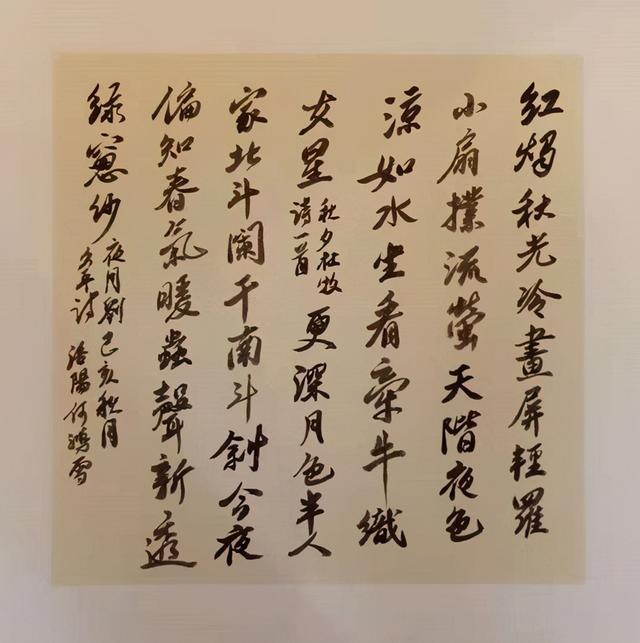 紅燭秋光冷畫屏輕羅
小扇撲流螢天階夜色
涼如水坐看牽牛織
女星
秋夕杜牧
詩一首
更深月色半人
家北斗闌干南斗斜今夜
偏知春氣暖蟲聲新透
綠窻紗
夜月劉
方平詩
己亥秋月
洛陽何鴻雪